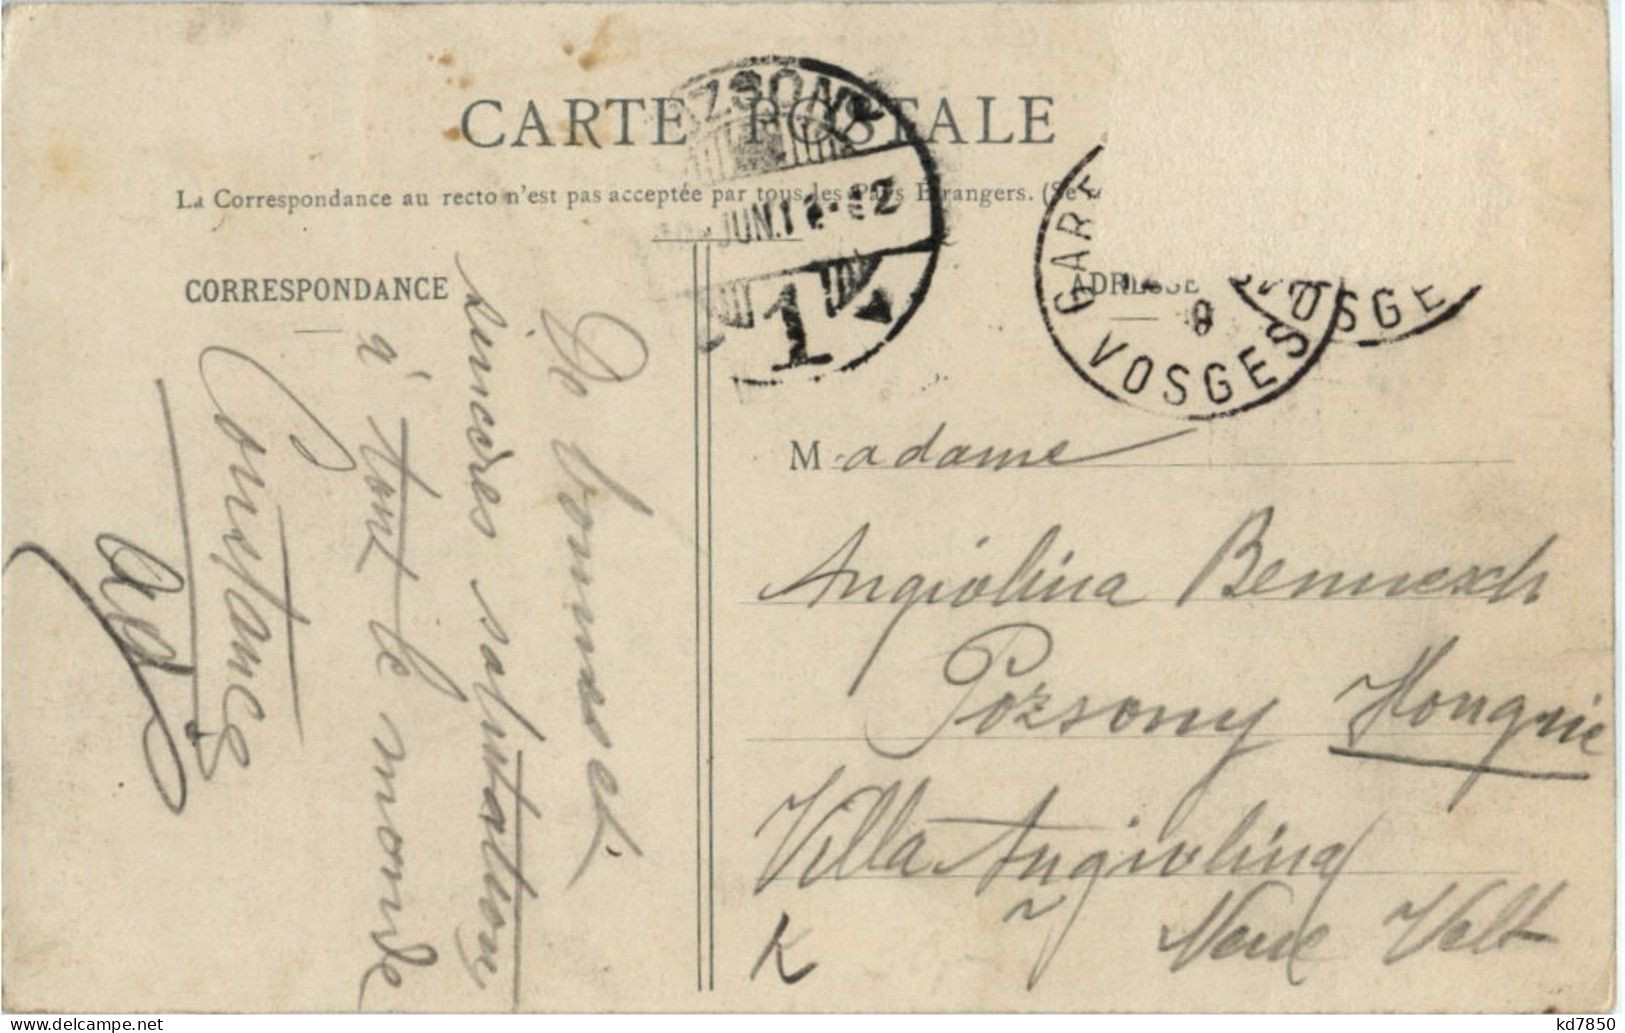 CARTE POSTALE
La Correspondance au recto n'est pas acceptée par tous les Pays Etrangers. (Se
POZSONY
JUN. 1
1
GARE
VOSGES
8
VOSGE
CORRESPONDANCE
ADRESSE
De bonnes et
sincères salutations
a' tout le monde
Constance
Madame
Angiolina Bennesch
Pozsony Hongrie
Villa Angiolina
Neue Welt
K
kd7850